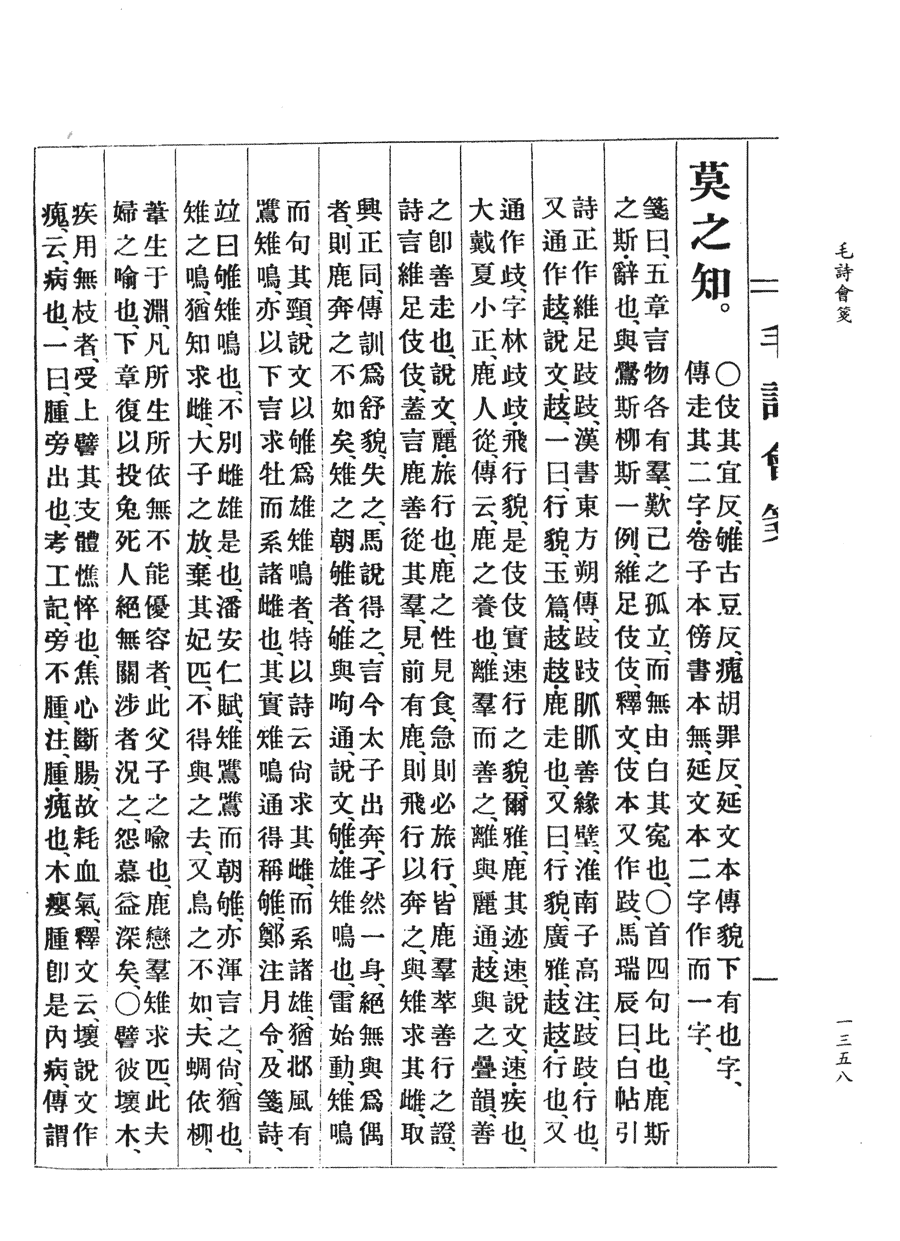 毛詩會箋
一三五八
毛詩會箋
莫之知。
○伎其宜反、雊古豆反、瘣胡罪反、延文本傳貌下有也字、
傳走其二字、卷子本傍書本無、延文本二字作而一字、
箋曰、五章言物各有羣、歎己之孤立、而無由白其寃也、○首四句比也、鹿斯
之斯、辭也、與鸒斯柳斯一例、維足伎伎、釋文、伎本又作跂、馬瑞辰曰、白帖引
詩正作維足跂跂、漢書東方朔傳、跂跂眽眽善緣壁、淮南子高注、跂跂、行也、
又通作䞚、說文、䞚、一曰、行貌、玉篇、䞚䞚、鹿走也、又曰、行貌、廣雅、䞚䞚、行也、又
通作歧、字林歧歧、飛行貌、是伎伎實速行之貌、爾雅、鹿其迹速、說文、速、疾也、
大戴夏小正、鹿人從、傳云、鹿之養也、離羣而善之、離與麗通、䞚與之疊韻、善
之卽善走也、說文、麗、旅行也、鹿之性見食、急則必旅行、皆鹿羣萃善行之證、
詩言維足伎伎、蓋言鹿善從其羣、見前有鹿、則飛行以奔之、與雉求其雌、取
興正同、傳訓爲舒貌、失之、馬說得之、言今太子出奔、孑然一身、絕無與爲偶
者、則鹿奔之不如矣、雉之朝雊者、雊與呴通、說文、雊、雄雉鳴也、雷始動、雉鳴
而句其頸、說文以雊爲雄雉鳴者、特以詩云尙求其雌、而系諸雄、猶邶風有
鷕雉鳴、亦以下言求牡而系諸雌也、其實雉鳴通得稱雊、鄭注月令、及箋詩、
竝曰雊雉鳴也、不別雌雄是也、潘安仁賦、雉鷕鷕而朝雊、亦渾言之、尙、猶也、
雉之鳴、猶知求雌、大子之放、棄其妃匹、不得與之去、又鳥之不如、夫蜩依柳、
葦生于淵、凡所生所依無不能優容者、此父子之喩也、鹿戀羣雉求匹、此夫
婦之喩也、下章復以投兔死人絕無關涉者況之、怨慕益深矣、○譬彼壞木、
疾用無枝者、受上譬其支體憔悴也、焦心斷腸、故耗血氣、釋文云、壞說文作
瘣、云、病也、一曰、腫旁出也、考工記、旁不腫、注、腫、瘣也、木癭腫卽是內病、傳謂